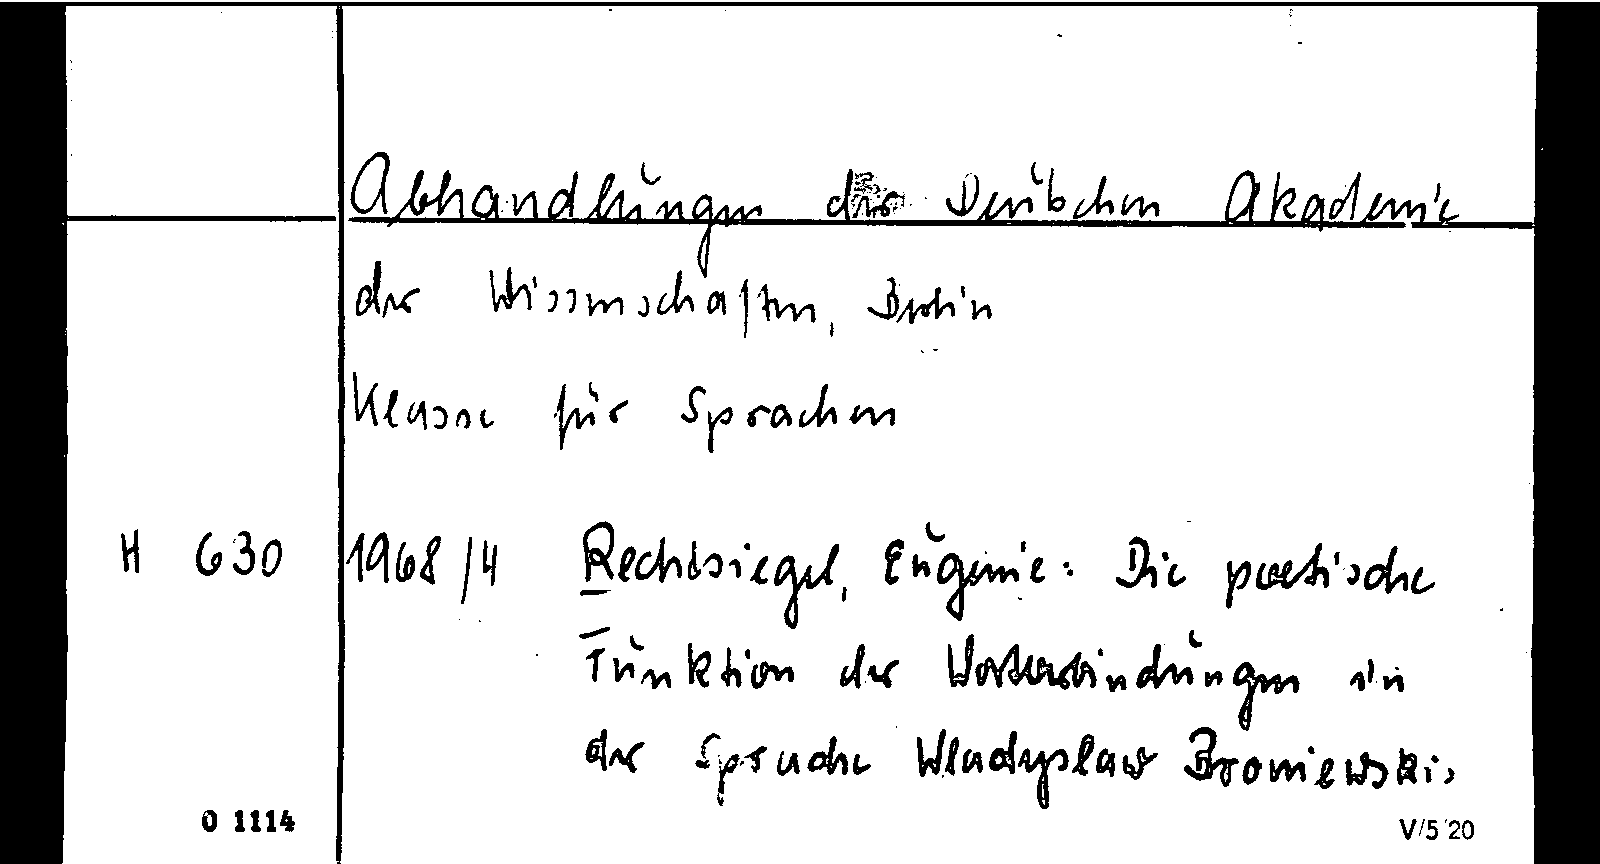 Abhandlungen der Deutschen Akademie
der Wissenschaften, Berlin
Klasse für Sprachen
H 630 1968/4 Rechtsiegel, Eugenie: Die poetische
Funktion der Wortverbindungen in
der Sprache Wladyslaw Broniewskis
0 1114 V/5 20